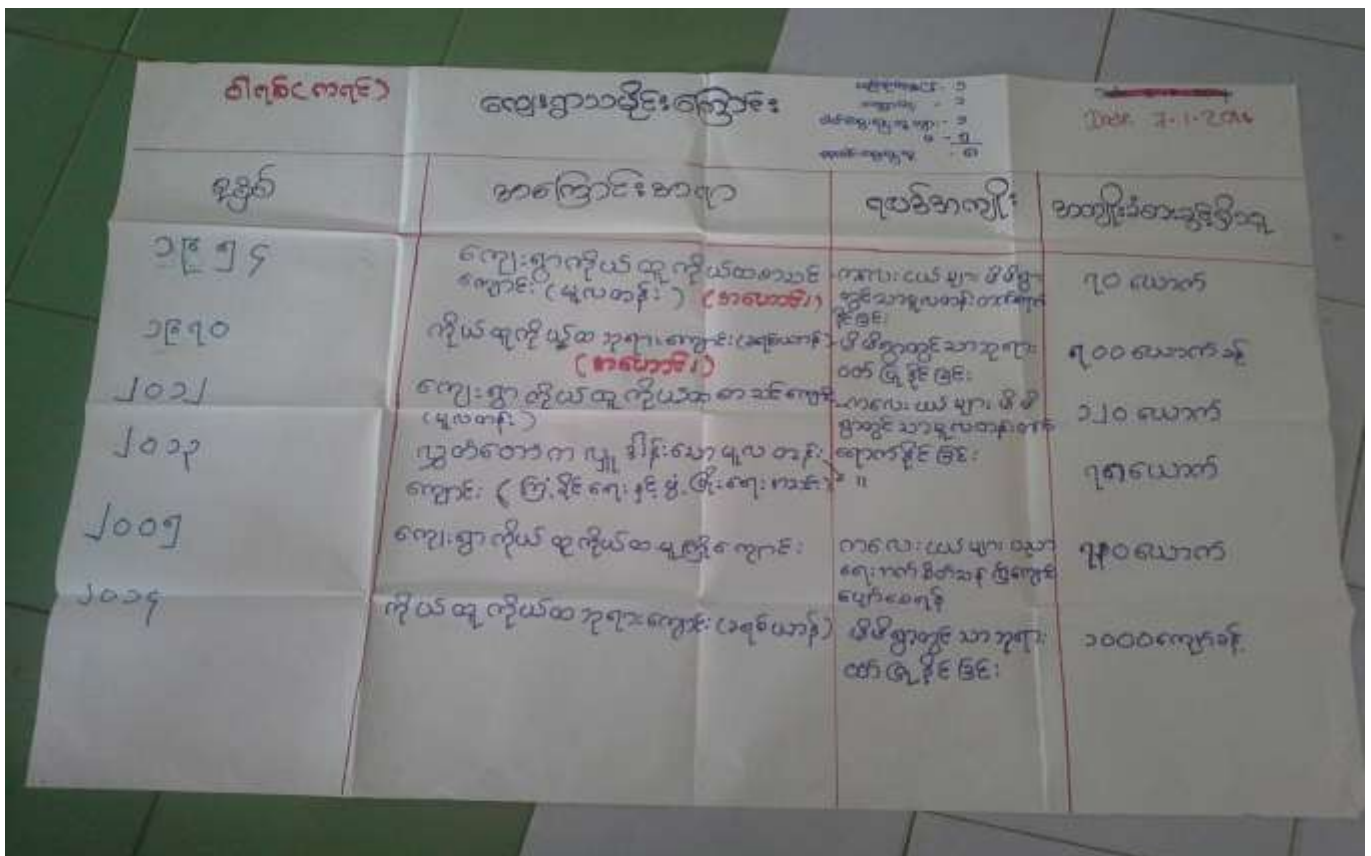 ဝါရစ် (ကရင်)
ကျေးရွာသမိုင်းကြောင်း
Date 7-1-2016
ခုနှစ်
အကြောင်းအရာ
ရပစ်အကျိုး
အကျိုးခံစားခွင့်ရှိသူ
၁၉၅၄
ကျေးရွာကိုယ်ထူကိုယ်ထစာသင်
ကျောင်း (မူလတန်း) (စာဟောင်း)
ကလေးငယ်များ မိမိရွာ
တွင်သာမူလတန်းတက်ရောက်
နိုင်ခြင်း
၇၀ ယောက်
၁၉၇၀
ကိုယ်ထူကိုယ်ထ ဘုရားကျောင်း (ခရစ်ယာန်)
(စာဟောင်း)
မိမိရွာတွင်သာဘုရား
ဝတ်ပြုနိုင်ခြင်း
၇၀၀ ယောက်ခန့်
၂၀၁၂
ကျေးရွာ ကိုယ်ထူကိုယ်ထ စာသင်ကျောင်း
(မူလတန်း)
ကလေးငယ်များ မိမိ
ရွာတွင်သာမူလတန်းတက်
ရောက်နိုင်ခြင်း
၁၂၀ ယောက်
၂၀၁၃
လွှတ်တော်က လှူဒါန်းသောမူလတန်း
ကျောင်း (ကြံ့ခိုင်ရေးနှင့်ဖွံ့ဖြိုးရေးပါတီ)
" ။
ယောက်
၂၀၀၅
ကျေးရွာ ကိုယ်ထူကိုယ်ထ မူကြိုကျောင်း
ကလေးငယ်များ ပညာ
ရေးဘက်စိတ်သန်ပြီးကျောင်း
ပျော်စေရန်
ယောက်
၂၀၁၄
ကိုယ်ထူကိုယ်ထ ဘုရားကျောင်း (ခရစ်ယာန်)
မိမိရွာတွင်သာဘုရား
ဝတ်ပြုနိုင်ခြင်း
၁၀၀၀ကျော်ခန့်